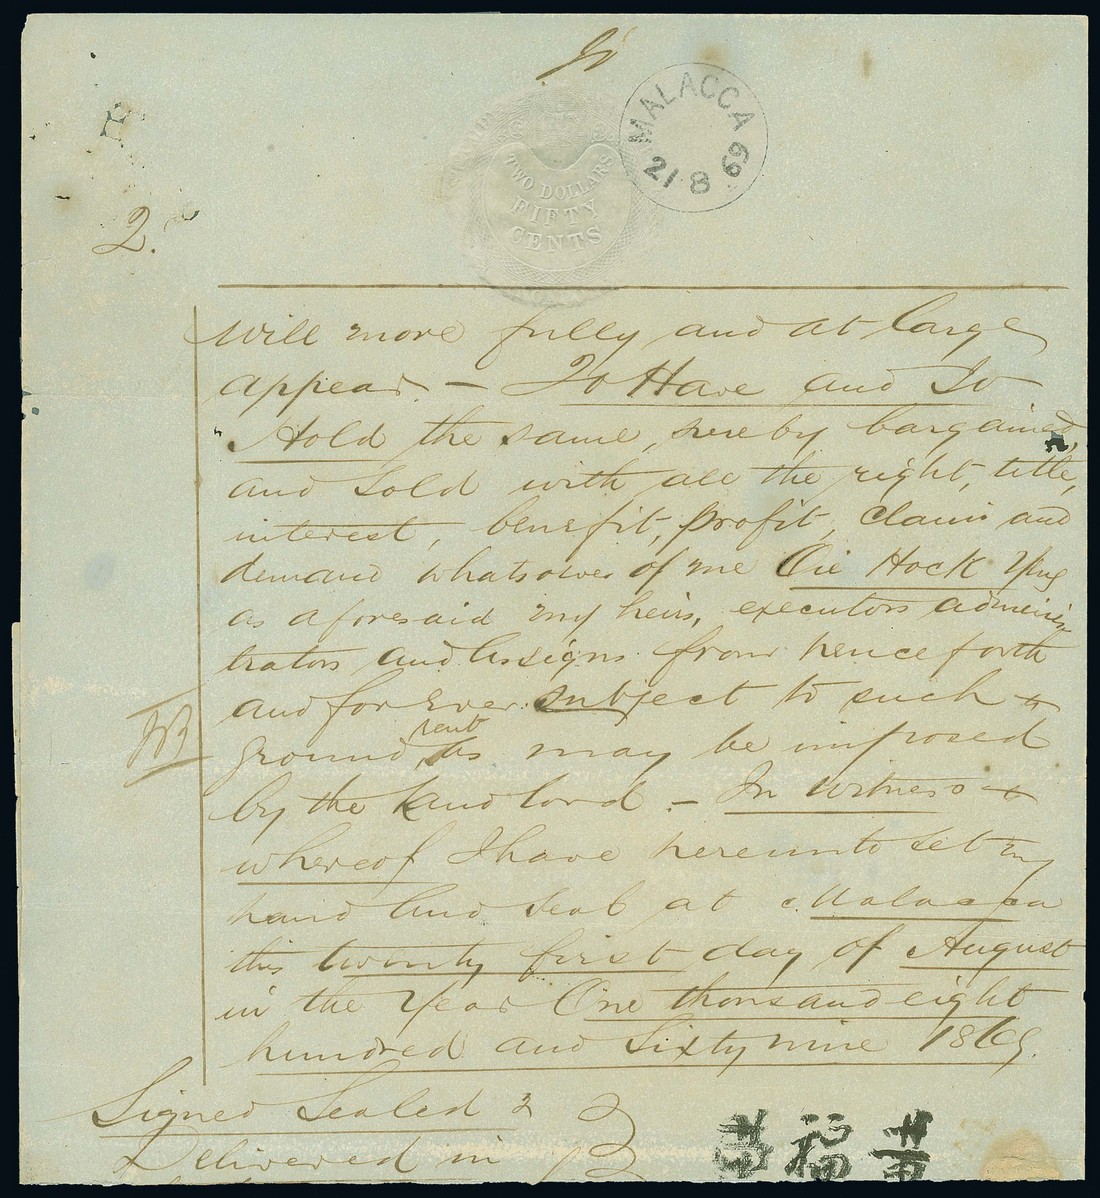 MALACCA
21 8 69
TWO DOLLARS
FIFTY
CENTS
2.
will more fully and at large
appear - To Have and To
Hold the same, hereby bargained,
and Sold with all the right, title,
interest, benefit, profit, claim and
demand whatsoever of me Oie Hock
as aforesaid my heirs, executors adminis
trators and Assigns from henceforth
and for Ever subject to such
ground rent as may be imposed
by the Landlord. - In Witness
whereof I have hereunto set my
hand and Seal at Malacca
this twenty first day of August
in the Year One thousand eight
hundred and Sixty nine 1869.
Signed Sealed &
Delivered in
福